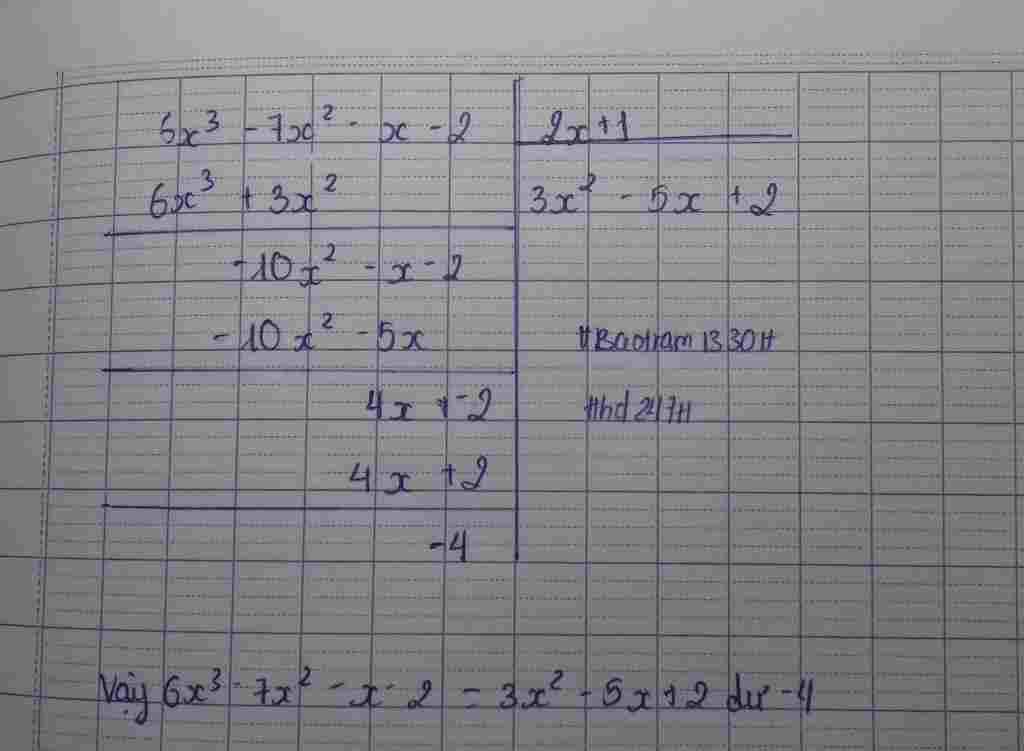 6x³ - 7x² - x - 2 | 2x + 1
6x³ + 3x² | 3x² - 5x + 2
-10x² - x - 2
-10x² - 5x
#Baotram1330#
4x - 2
#hd247#
4x + 2
-4
Vậy 6x³ - 7x² - x - 2 = 3x² - 5x + 2 dư -4